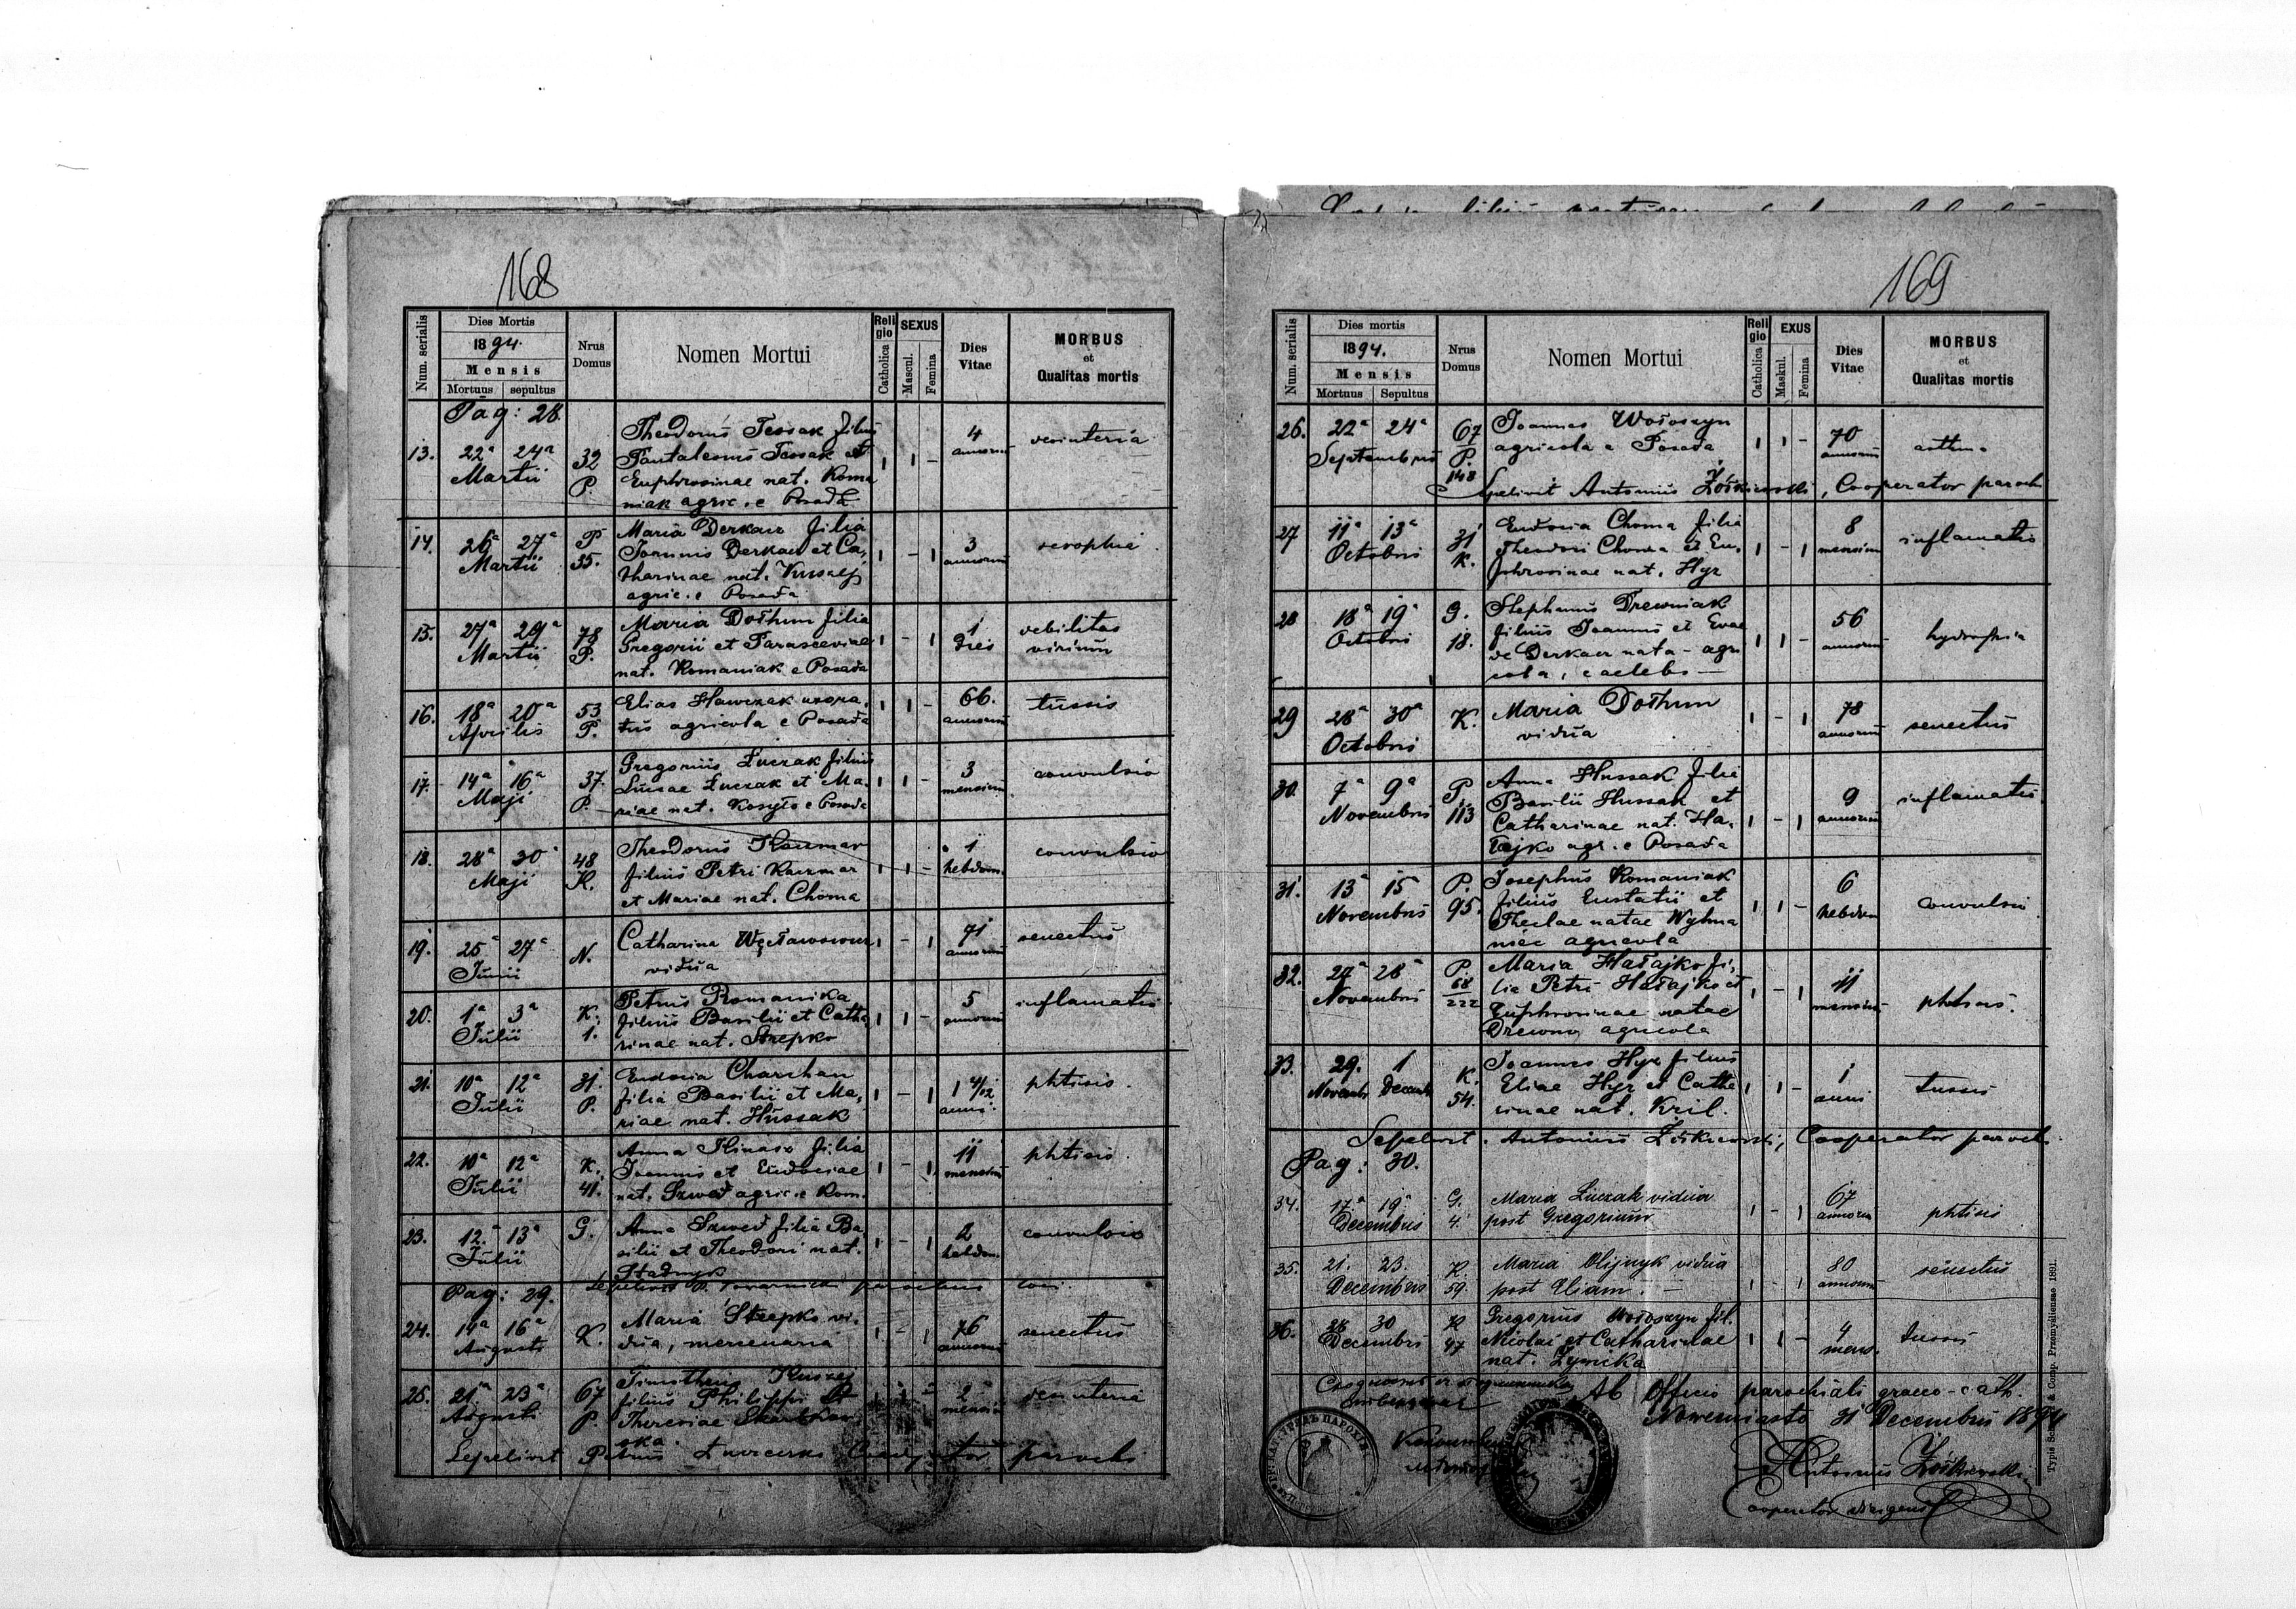 168
Num. serialis
Dies Mortis
1894.
Mensis
Mortuus sepultus
Nrus Domus
Nomen Mortui
Religio
Catholica
SEXUS
Mascul.
Femina
Dies Vitae
MORBUS
et
Qualitas mortis
Pag: 28.
13. 22a 24a Martii 32 P.
Theodorus Tessak filius
Pantalemis Tessak et
Euphrosinae nat. Roma
niak agric. e Posada
1 1 - 4 annorum
14. 26a 27a Martii P 35.
Maria Derkacz filia
Joannis Derkacz et Ca,
tharinae nat. Kuszlej
agric. e Posada
1 - 1 3 annorum
15. 27a 29a Martii 78 P.
Maria Dołhun filia
Gregorii et Parasceviae
nat. Romaniak e Posada
1 - 1 1 dies debilitas virium
16. 18a 20a Aprilis 53 P.
Elias Hawczak uxora,
tus agricola e Posada
1 1 - 66. annorum tussis
17. 14a 16a Maji 37. P.
Gregorius Łuczak filius
Lucae Łuczak et Ma,
riae nat. Kosyło e Posada
1 1 - 3 mensium convulsio
18. 28a 30a Maji 48 K.
Theodorus Kaczmar
filius Petri Kaczmar
et Mariae nat. Choma
1 1 - 1 hebdom. convulsio
19. 25a 27a Junii N.
Catharina
vidua
1 - 1 71 annorum senectus
20. 1a 3a Julii K. 1.
Petrus Romanika
filius Basilii et Catha
rinae nat. Strepko
1 1 - 5 annorum inflamatio
21. 10a 12a Julii 31. P.
Eudocia Charchan
filia Basilii et Ma,
riae nat. Hussak
1 - 1 1 4/12 anni. phtisis.
22. 10a 12a Julii K. 41.
Anna Hinasz filia
Joannis et Eudociae
nat. Szwed agric. e Kom.
1 - 1 11 mensium phtisis.
23. 12. 13a Julii G.
Anna Szwed filia Ba
silii et Theodori nat.
Stadnyk
1 - 1 2 hebdom. convulsio
Pag: 29. Sepelivit parochus loci.
24. 14a 16a Augusti K.
Maria Strepko vi,
dua, mercenaria
1 - 1 76 annorum senectus
25. 21a 23a Augusti 67 P.
Timotheus Kuszlej
filius Philippi et
Theresiae
2 mensium
Sepelivit Petrus parochi
169
Num. serialis
Dies mortis
1894.
Mensis
Mortuus Sepultus
Nrus Domus
Nomen Mortui
Religio
Catholica
EXUS
Maskul.
Femina
Dies Vitae
MORBUS
et
Qualitas mortis
26. 22a 24a Septembris 67 P. 148
Joannes Wołoszyn
agricola e Posada
1 1 - 70 annorum
Sepelivit Antonius Żółkiewski, Cooperator paroch
27 11a 13a Octobris 31 K.
Eudocia Choma filia
Theodori Choma et Eu,
phrosinae nat. Hyr
1 - 1 8 mensium inflamatio
28 18a 19a Octobris G. 18.
Stephanus Drewniak
filius Joannis et Evae
de Derkacz nata - agri
cola, caelebs
1 1 - 56 annorum hydropsia
29 28a 30a Octobris K.
Maria Dołhun
vidua
1 - 1 78 annorum senectus
30. 7a 9a Novembris P. 113
Anna Hussak filia
Basilii Hussak et
Catharinae nat. Ha,
łajko agr. e Posada
1 - 1 9 annorum inflamatio
31. 13a 15a Novembris P. 95.
Josephus Romaniak
filius Eustatii et
Theclae natae Wyhna
niec agricola
1 1 - 6 hebdom convulsio
32. 27a 28a Novembris P. 68 222
Maria Hałajko fi,
lia Petri Hałajko et
Euphrosinae natae
Drewny agricola
1 - 1 11 mensium phtisis.
33. 29. 1 Novemb Decemb K. 54.
Joannes Hyr filius
Eliae Hyr et Catha
rinae nat. Kril.
1 1 - 1 anni tussis
Sepelivit. Antonius Żółkiewski, Cooperator paroch.
Pag: 30.
34. 17a 19a Decembris G. 4.
Maria Łuczak vidua
post Gregorium
1 - 1 67 annorum phtisis
35. 21. 23. Decembris K. 59.
Maria Olijnyk vidua
post Eliam. -
1 - 1 80 annorum senectus
36. 28 30 Decembris K 47
Gregorius Wołoszyn fil.
Nicolai et Catharinae
nat. Żynicka
1 1 - 4 mens. tussis
Ab Officio parochiali graeco-cath.
Novemiasto 31 Decembris 1894
Antonius Żółkiewski
Cooperator dirigens
Typis Sch. & Comp. Przemysliensae 1891.